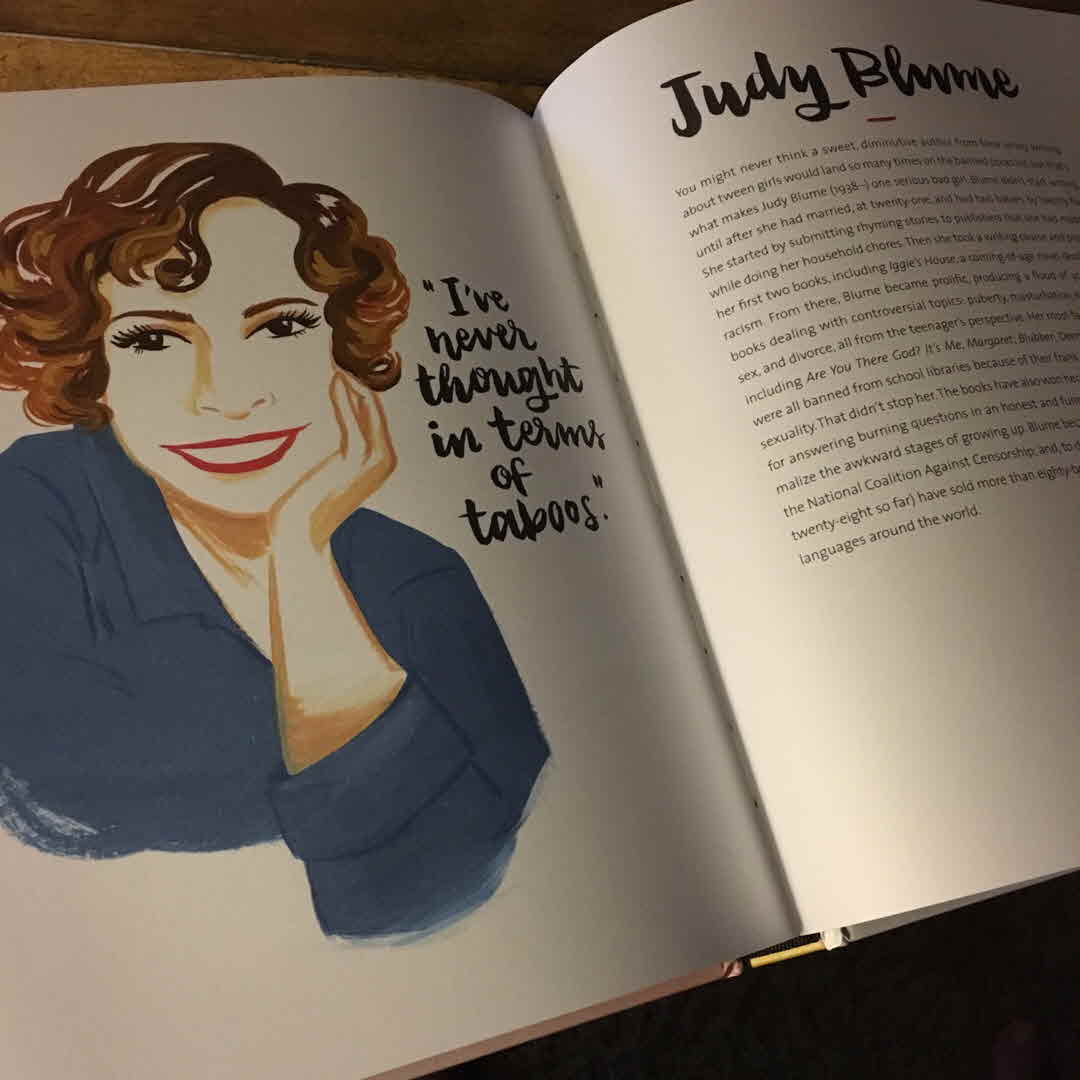 "I've
never
thought
in terms
of
taboos."
Judy Blume
You might never think a sweet, diminutive author from New Jersey writing
about tween girls would land so many times on the banned
what makes Judy Blume (1938–) one serious bad girl. Blume didn't start writing
until after she had married, at twenty-one, and had two babies by twenty
She started by submitting rhyming stories to publishers that she had
while doing her household chores. Then she took a writing course and
her first two books, including Iggie's House, a coming-of-age novel
racism. From there, Blume became prolific, producing a flood of
books dealing with controversial topics: puberty, masturbation,
sex, and divorce, all from the teenager's perspective. Her most
including Are You There God? It's Me, Margaret, Blubber,
were all banned from school libraries because of their frank
sexuality. That didn't stop her. The books have also won
for answering burning questions in an honest and
malize the awkward stages of growing up. Blume
the National Coalition Against Censorship, and, to
twenty-eight so far) have sold more than eighty
languages around the world.